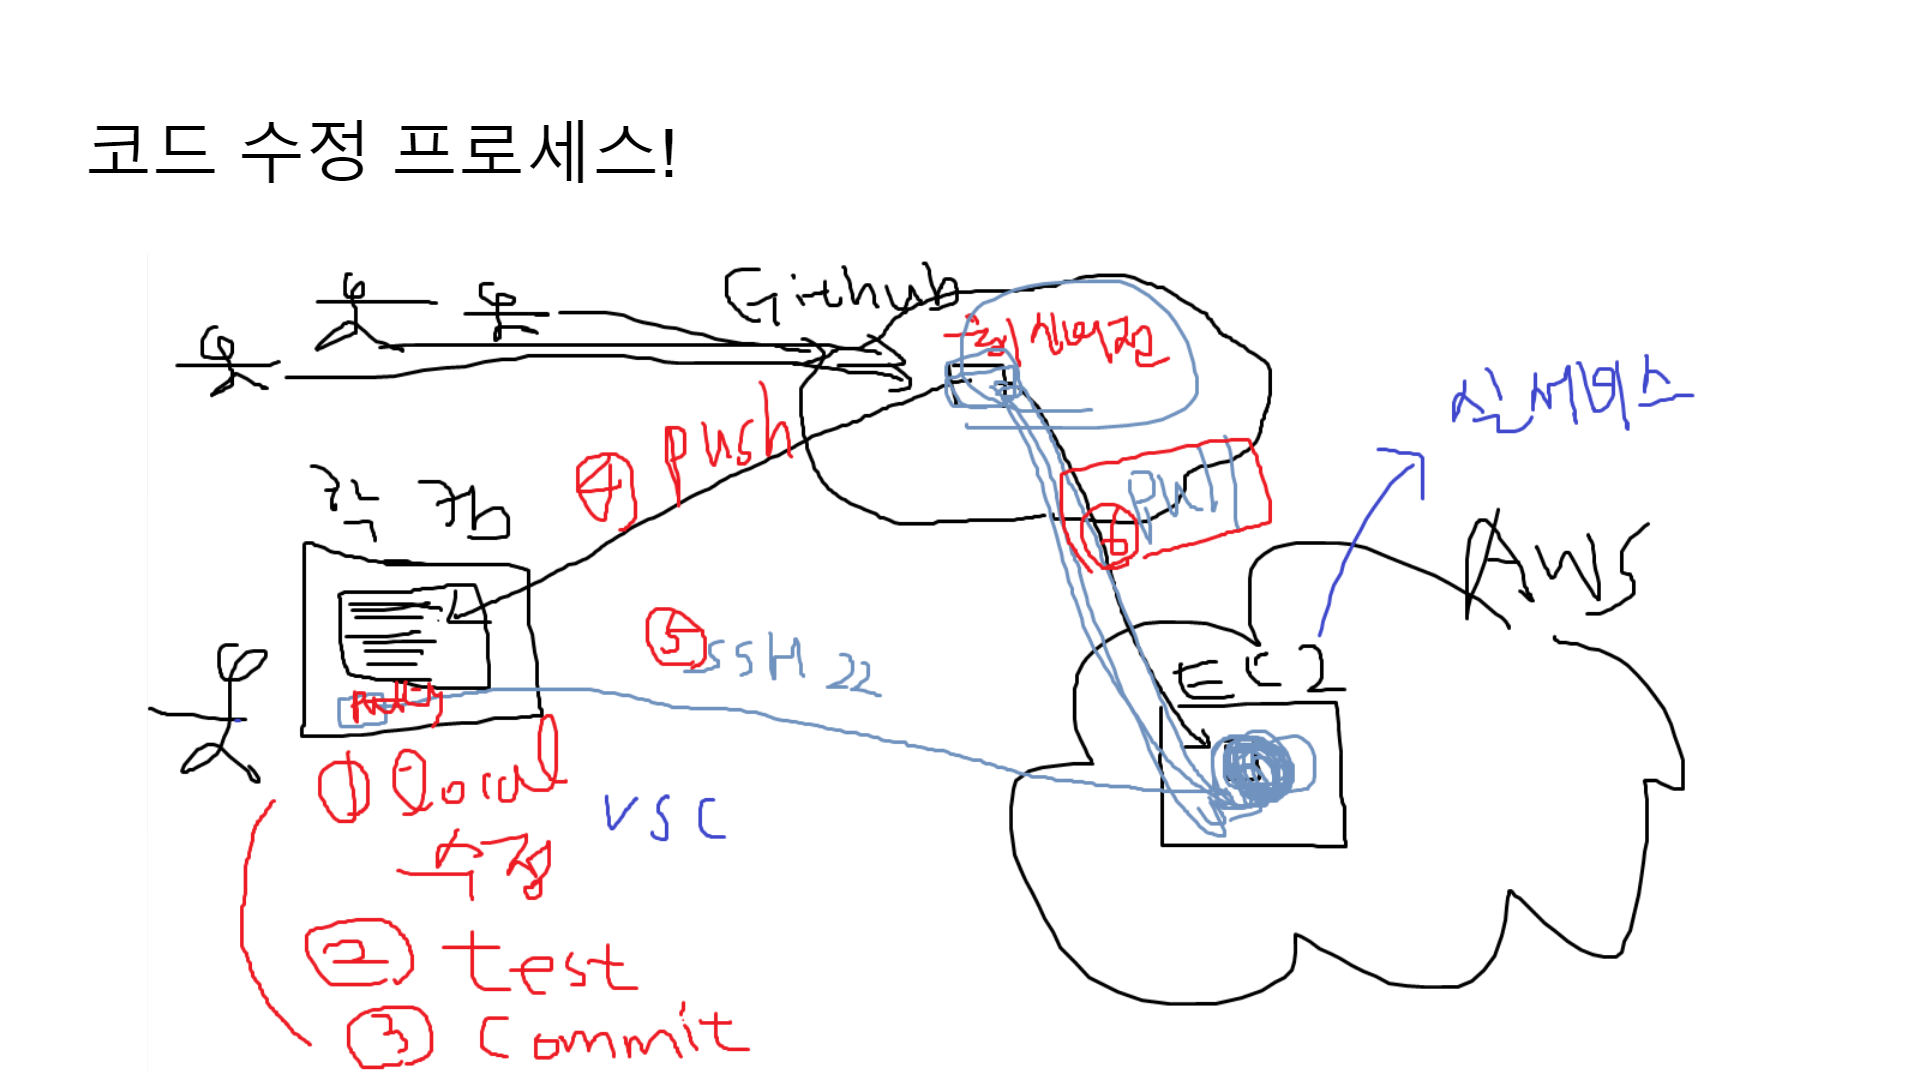 코드 수정 프로세스!
Github
최신버전
④ push
pull
⑥
신서비스
AWS
⑤ SSH 22
EC2
① Local
수정
VSC
② test
③ Commit